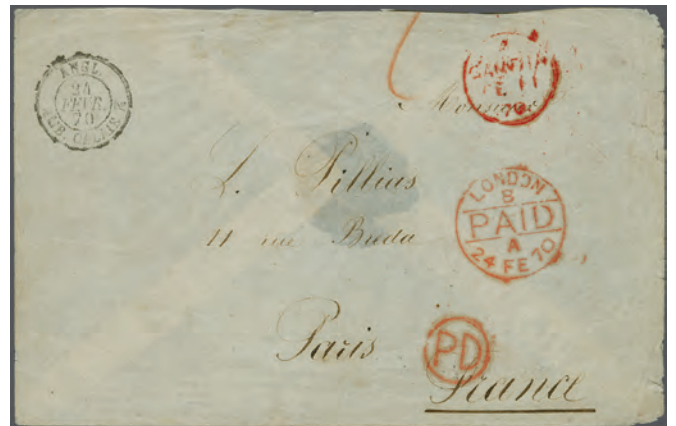 ANGL.
24
FEVR.
70
PAID
FE 11
70
Monsieur
L. Pillias
11 rue Breda
LONDON
8
PAID
A
24 FE 70
Paris
PD
France